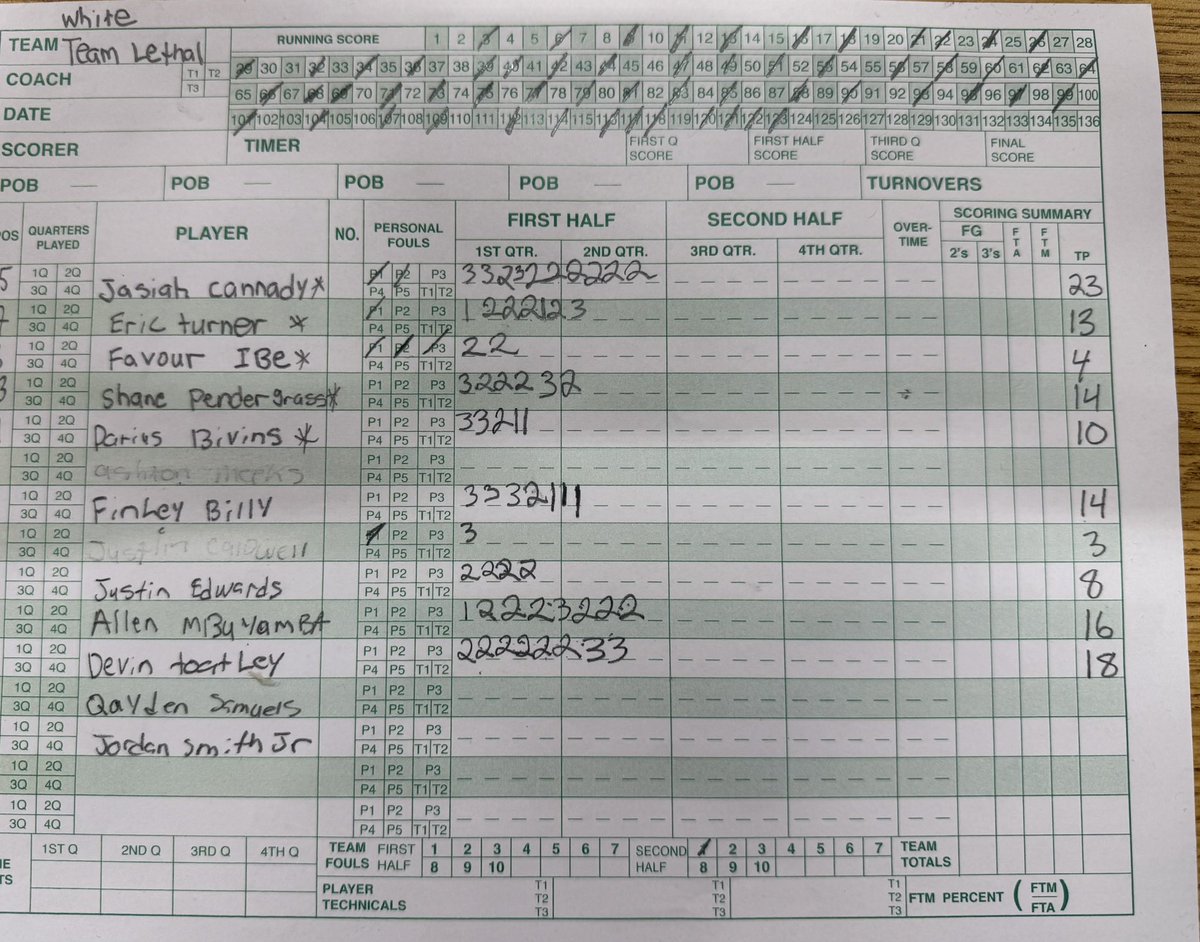 White
TEAM Team Lethal
RUNNING SCORE 1 2 3 4 5 6 7 8 9 10 11 12 13 14 15 16 17 18 19 20 21 22 23 24 25 26 27 28
COACH T1 T2 T3
29 30 31 32 33 34 35 36 37 38 39 40 41 42 43 44 45 46 47 48 49 50 51 52 53 54 55 56 57 58 59 60 61 62 63 64
65 66 67 68 69 70 71 72 73 74 75 76 77 78 79 80 81 82 83 84 85 86 87 88 89 90 91 92 93 94 95 96 97 98 99 100
DATE
101 102 103 104 105 106 107 108 109 110 111 112 113 114 115 116 117 118 119 120 121 122 123 124 125 126 127 128 129 130 131 132 133 134 135 136
SCORER TIMER FIRST Q SCORE FIRST HALF SCORE THIRD Q SCORE FINAL SCORE
POB POB POB POB POB TURNOVERS
POS QUARTERS PLAYED PLAYER NO. PERSONAL FOULS FIRST HALF SECOND HALF OVER-TIME SCORING SUMMARY
1ST QTR. 2ND QTR. 3RD QTR. 4TH QTR. FG 2's 3's FTA FTM TP
5 1Q 2Q 3Q 4Q Jasiah Cannady* P1 P2 P3 P4 P5 T1 T2 3323122222 23
1Q 2Q 3Q 4Q Eric turner * P1 P2 P3 P4 P5 T1 T2 1222123 13
1Q 2Q 3Q 4Q Favour IBe* P1 P2 P3 P4 P5 T1 T2 22 4
3 1Q 2Q 3Q 4Q Shane Pendergrass* P1 P2 P3 P4 P5 T1 T2 322232 14
1Q 2Q 3Q 4Q Darius Bivins * P1 P2 P3 P4 P5 T1 T2 33211 10
1Q 2Q 3Q 4Q ashton meeks P1 P2 P3 P4 P5 T1 T2
1Q 2Q 3Q 4Q Finley Billy P1 P2 P3 P4 P5 T1 T2 3332111 14
1Q 2Q 3Q 4Q Justin Caldwell P1 P2 P3 P4 P5 T1 T2 3 3
1Q 2Q 3Q 4Q Justin Edwards P1 P2 P3 P4 P5 T1 T2 2222 8
1Q 2Q 3Q 4Q Allen MBuyamBA P1 P2 P3 P4 P5 T1 T2 12223222 16
1Q 2Q 3Q 4Q Devin toatley P1 P2 P3 P4 P5 T1 T2 22222233 18
1Q 2Q 3Q 4Q Qayden Samuels P1 P2 P3 P4 P5 T1 T2
1Q 2Q 3Q 4Q Jordan Smith Jr P1 P2 P3 P4 P5 T1 T2
1Q 2Q 3Q 4Q P1 P2 P3 P4 P5 T1 T2
1Q 2Q 3Q 4Q P1 P2 P3 P4 P5 T1 T2
1ST Q 2ND Q 3RD Q 4TH Q TEAM FOULS FIRST HALF 1 2 3 4 5 6 7 8 9 10 SECOND HALF 1 2 3 4 5 6 7 8 9 10 TEAM TOTALS
PLAYER TECHNICALS T1 T2 T3 T1 T2 T3 T1 T2 T3 FTM PERCENT (FTM FTA)